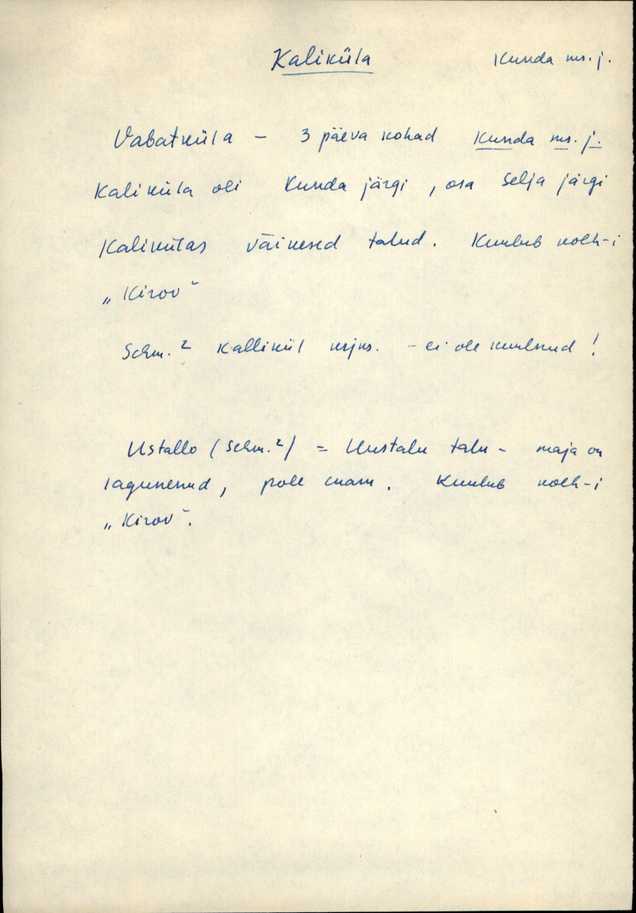 Kaliküla Kunda ms. j.
Vabatküla – 3 päeva kohad Kunda ms. j.
Kaliküla oli Kunda järgi, osa Selja järgi
Kalikülas väikesed talud. Kuulub kolh-i
„Kirov"
Schm.² Kallikül – ei ole kuulnud!
Ustallo (Schm.²) = Uustalu talu – maja on
lagunenud, pole enam. Kuulub kolh-i
„Kirov".